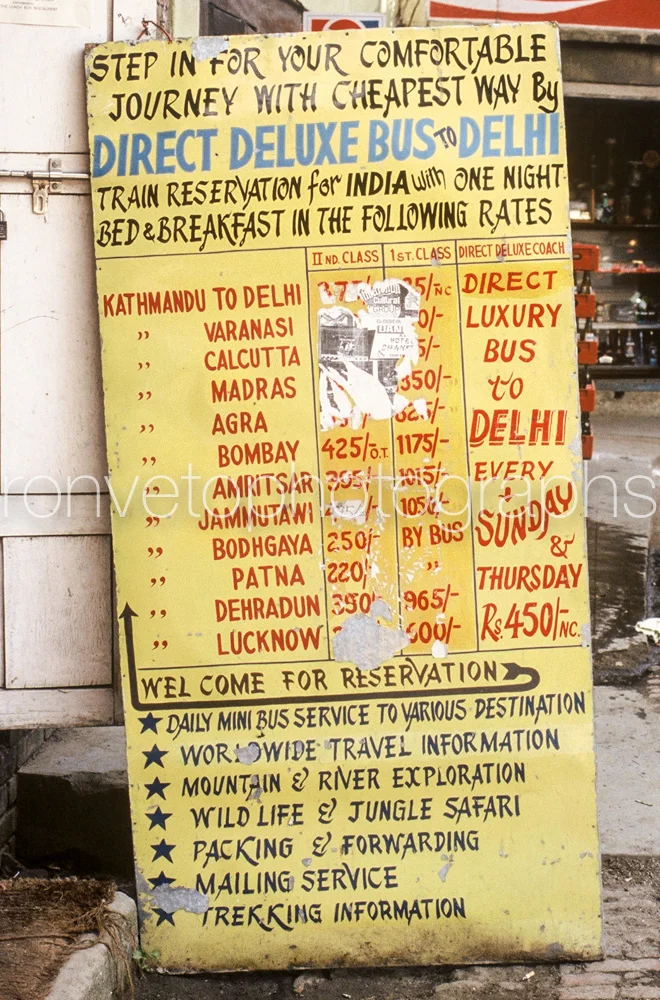 STEP IN FOR YOUR COMFORTABLE
JOURNEY WITH CHEAPEST WAY By
DIRECT DELUXE BUS TO DELHI
TRAIN RESERVATION for INDIA with ONE NIGHT
BED & BREAKFAST IN THE FOLLOWING RATES
II ND. CLASS 1ST. CLASS DIRECT DELUXE COACH
KATHMANDU TO DELHI DIRECT
,, VARANASI LUXURY
,, CALCUTTA BUS
,, MADRAS to
,, AGRA DELHI
,, BOMBAY 425/- O.T. 1175/-
,, AMRITSAR 1015/- EVERY
,, JAMMUTAWI SUNDAY
,, BODHGAYA 250/- BY BUS &
,, PATNA 220/- ,, THURSDAY
,, DEHRADUN 965/-
,, LUCKNOW 600/- Rs. 450/- NC.
WEL COME FOR RESERVATION
DAILY MINI BUS SERVICE TO VARIOUS DESTINATION
WORLDWIDE TRAVEL INFORMATION
MOUNTAIN & RIVER EXPLORATION
WILD LIFE & JUNGLE SAFARI
PACKING & FORWARDING
MAILING SERVICE
TREKKING INFORMATION
ronvetophotographs